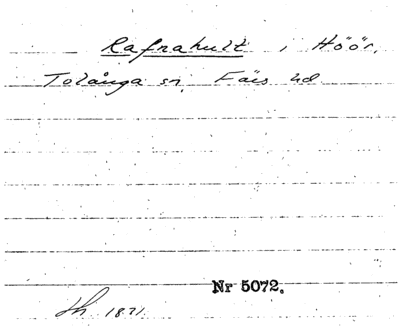 Rafnahult i Höör.
Tolånga sn. Färs hd
Nr 5072.
1871